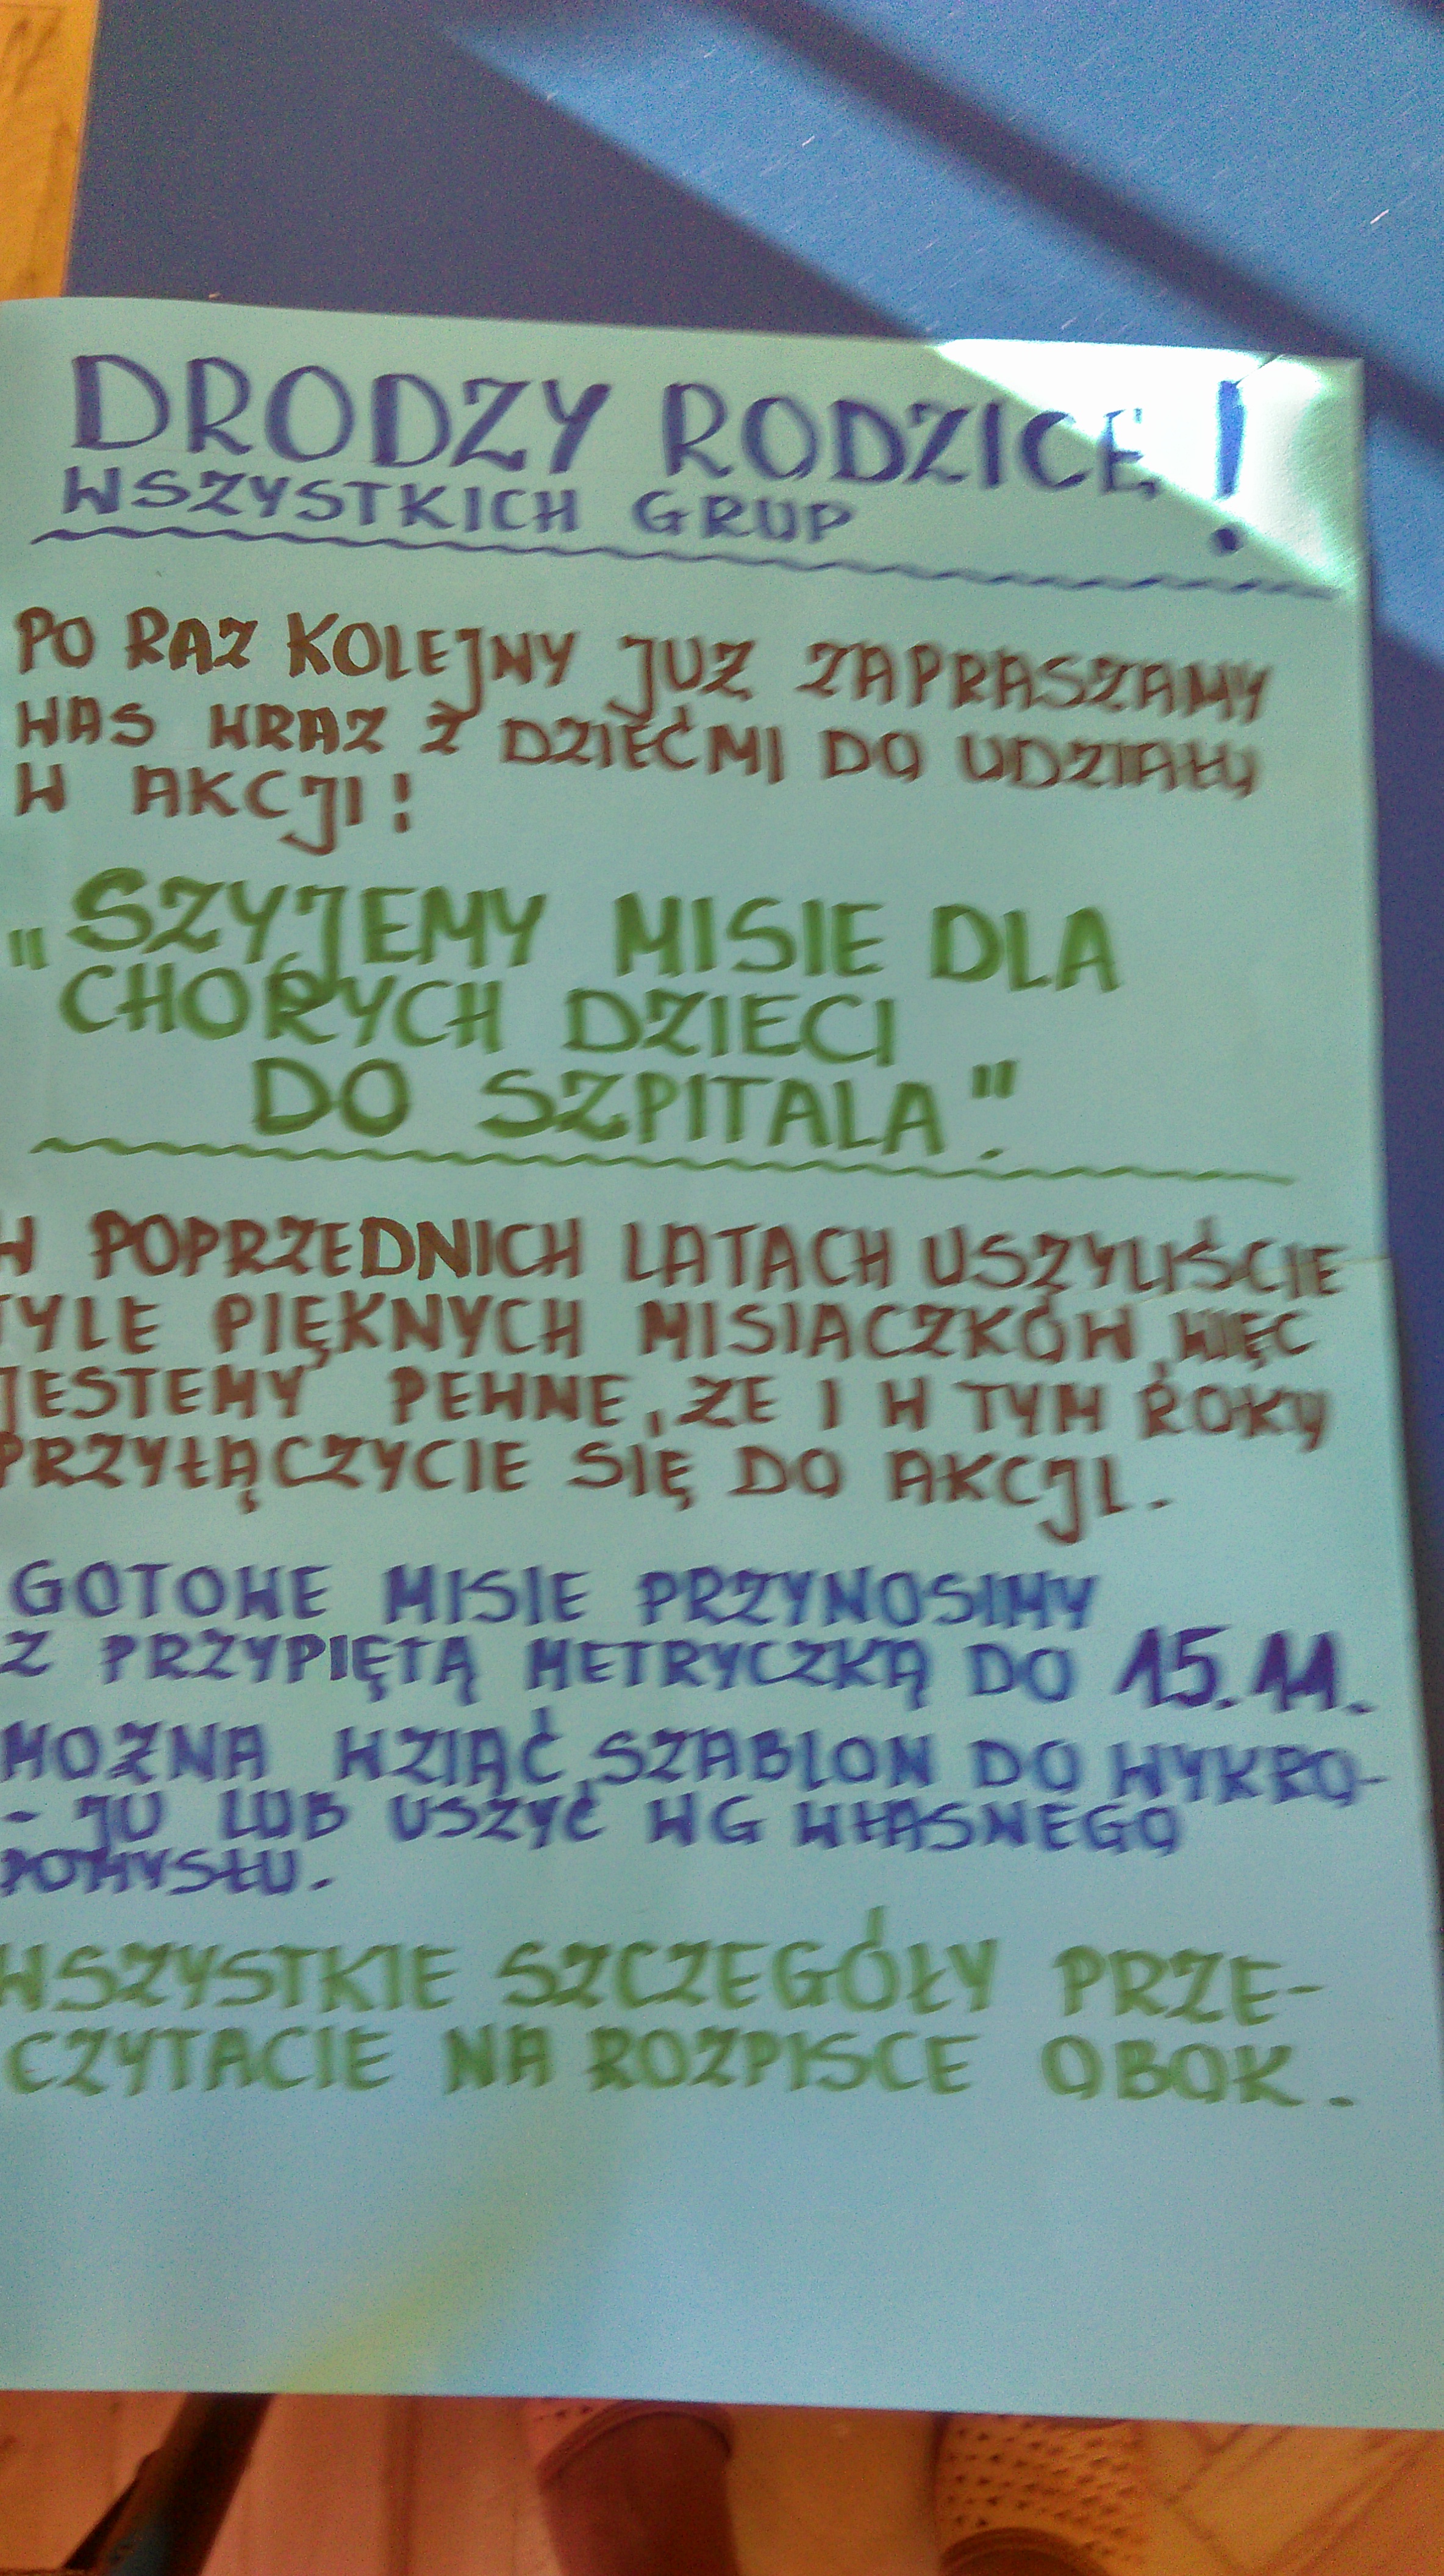 DRODZY RODZICE!
WSZYSTKICH GRUP
PO RAZ KOLEJNY JUŻ ZAPRASZAMY
WAS WRAZ Z DZIEĆMI DO UDZIAŁU
W AKCJI!
„SZYJEMY MISIE DLA
CHORYCH DZIECI
DO SZPITALA".
W POPRZEDNICH LATACH USZYLIŚCIE
TYLE PIĘKNYCH MISIACZKÓW, WIĘC
JESTEMY PEWNE, ŻE I W TYM ROKU
PRZYŁĄCZYCIE SIĘ DO AKCJI.
GOTOWE MISIE PRZYNOSIMY
Z PRZYPIĘTĄ METRYCZKĄ DO 15.11.
MOŻNA WZIĄĆ SZABLON DO WYKRO-
- JU LUB USZYĆ WG WŁASNEGO
POMYSŁU.
WSZYSTKIE SZCZEGÓŁY PRZE-
CZYTACIE NA ROZPISCE OBOK.